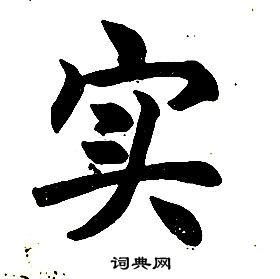 实
词典网